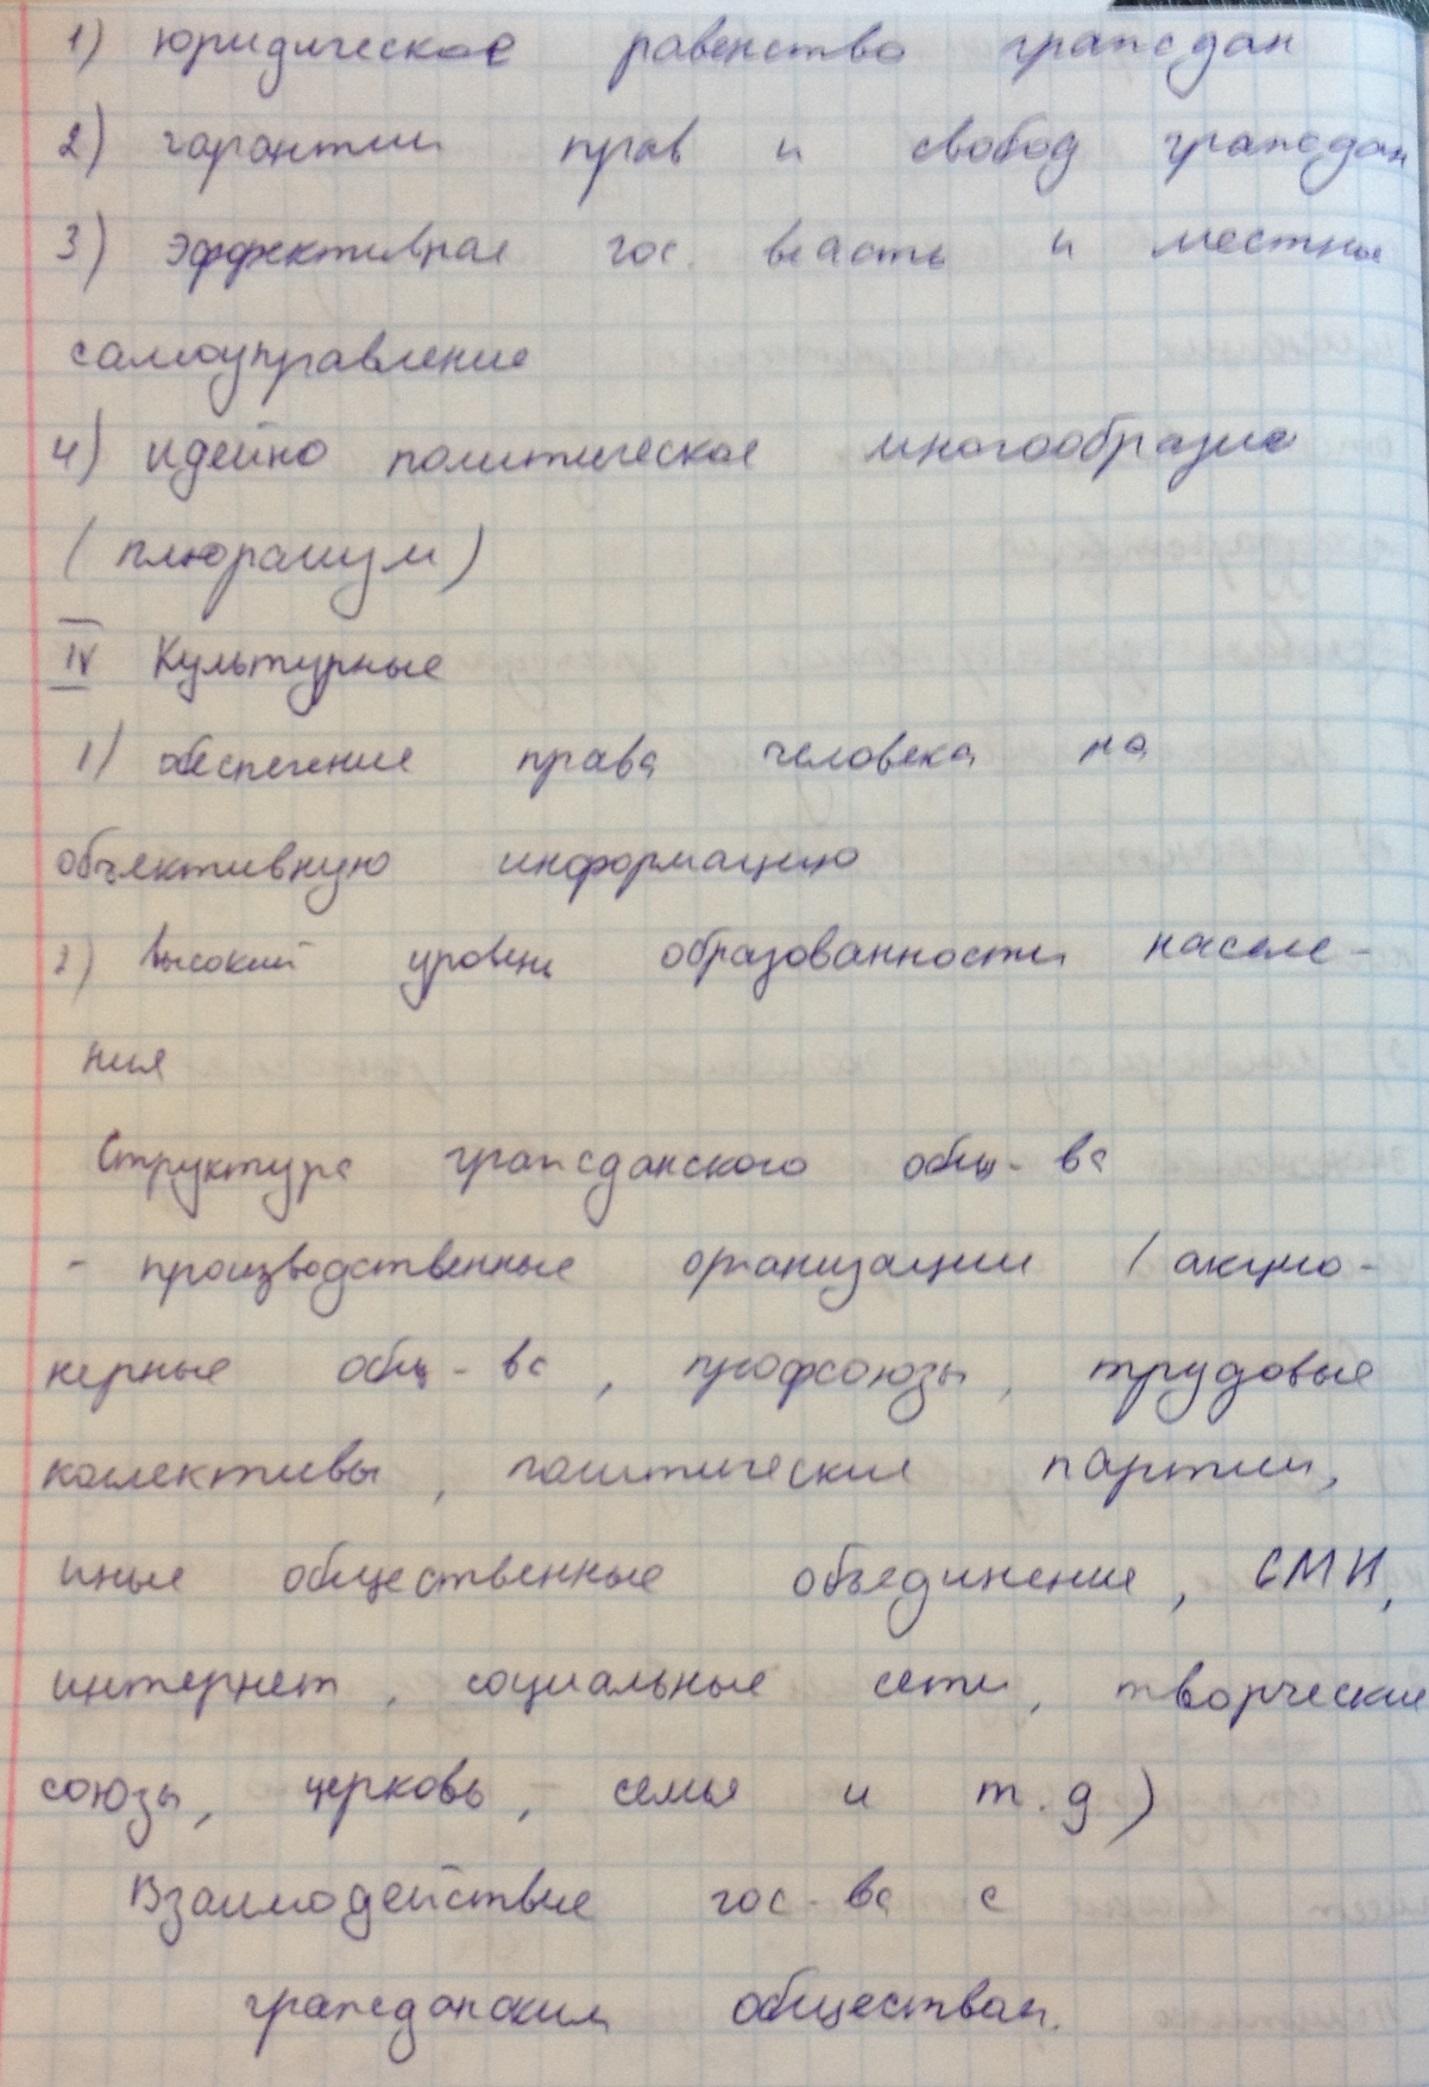 1) юридическое равенство граждан
2) гарантии прав и свобод граждан
3) эффективная гос. власть и местные
самоуправление
4) идейно политическое многообразие
(плюрализм)
IV Культурные
1) обеспечение права человека на
объективную информацию
2) высокий уровень образованности населе-
ния
Структура гражданского общ-ва
- производственные организации (акцио-
нерные общ-ва, профсоюзы, трудовые
колективы, политические партии,
иные общественные объединение, СМИ,
интернет, социальные сети, творческие
союзы, церковь, семья и т.д)
Взаимодействие гос-ва с
гражданским обществом.